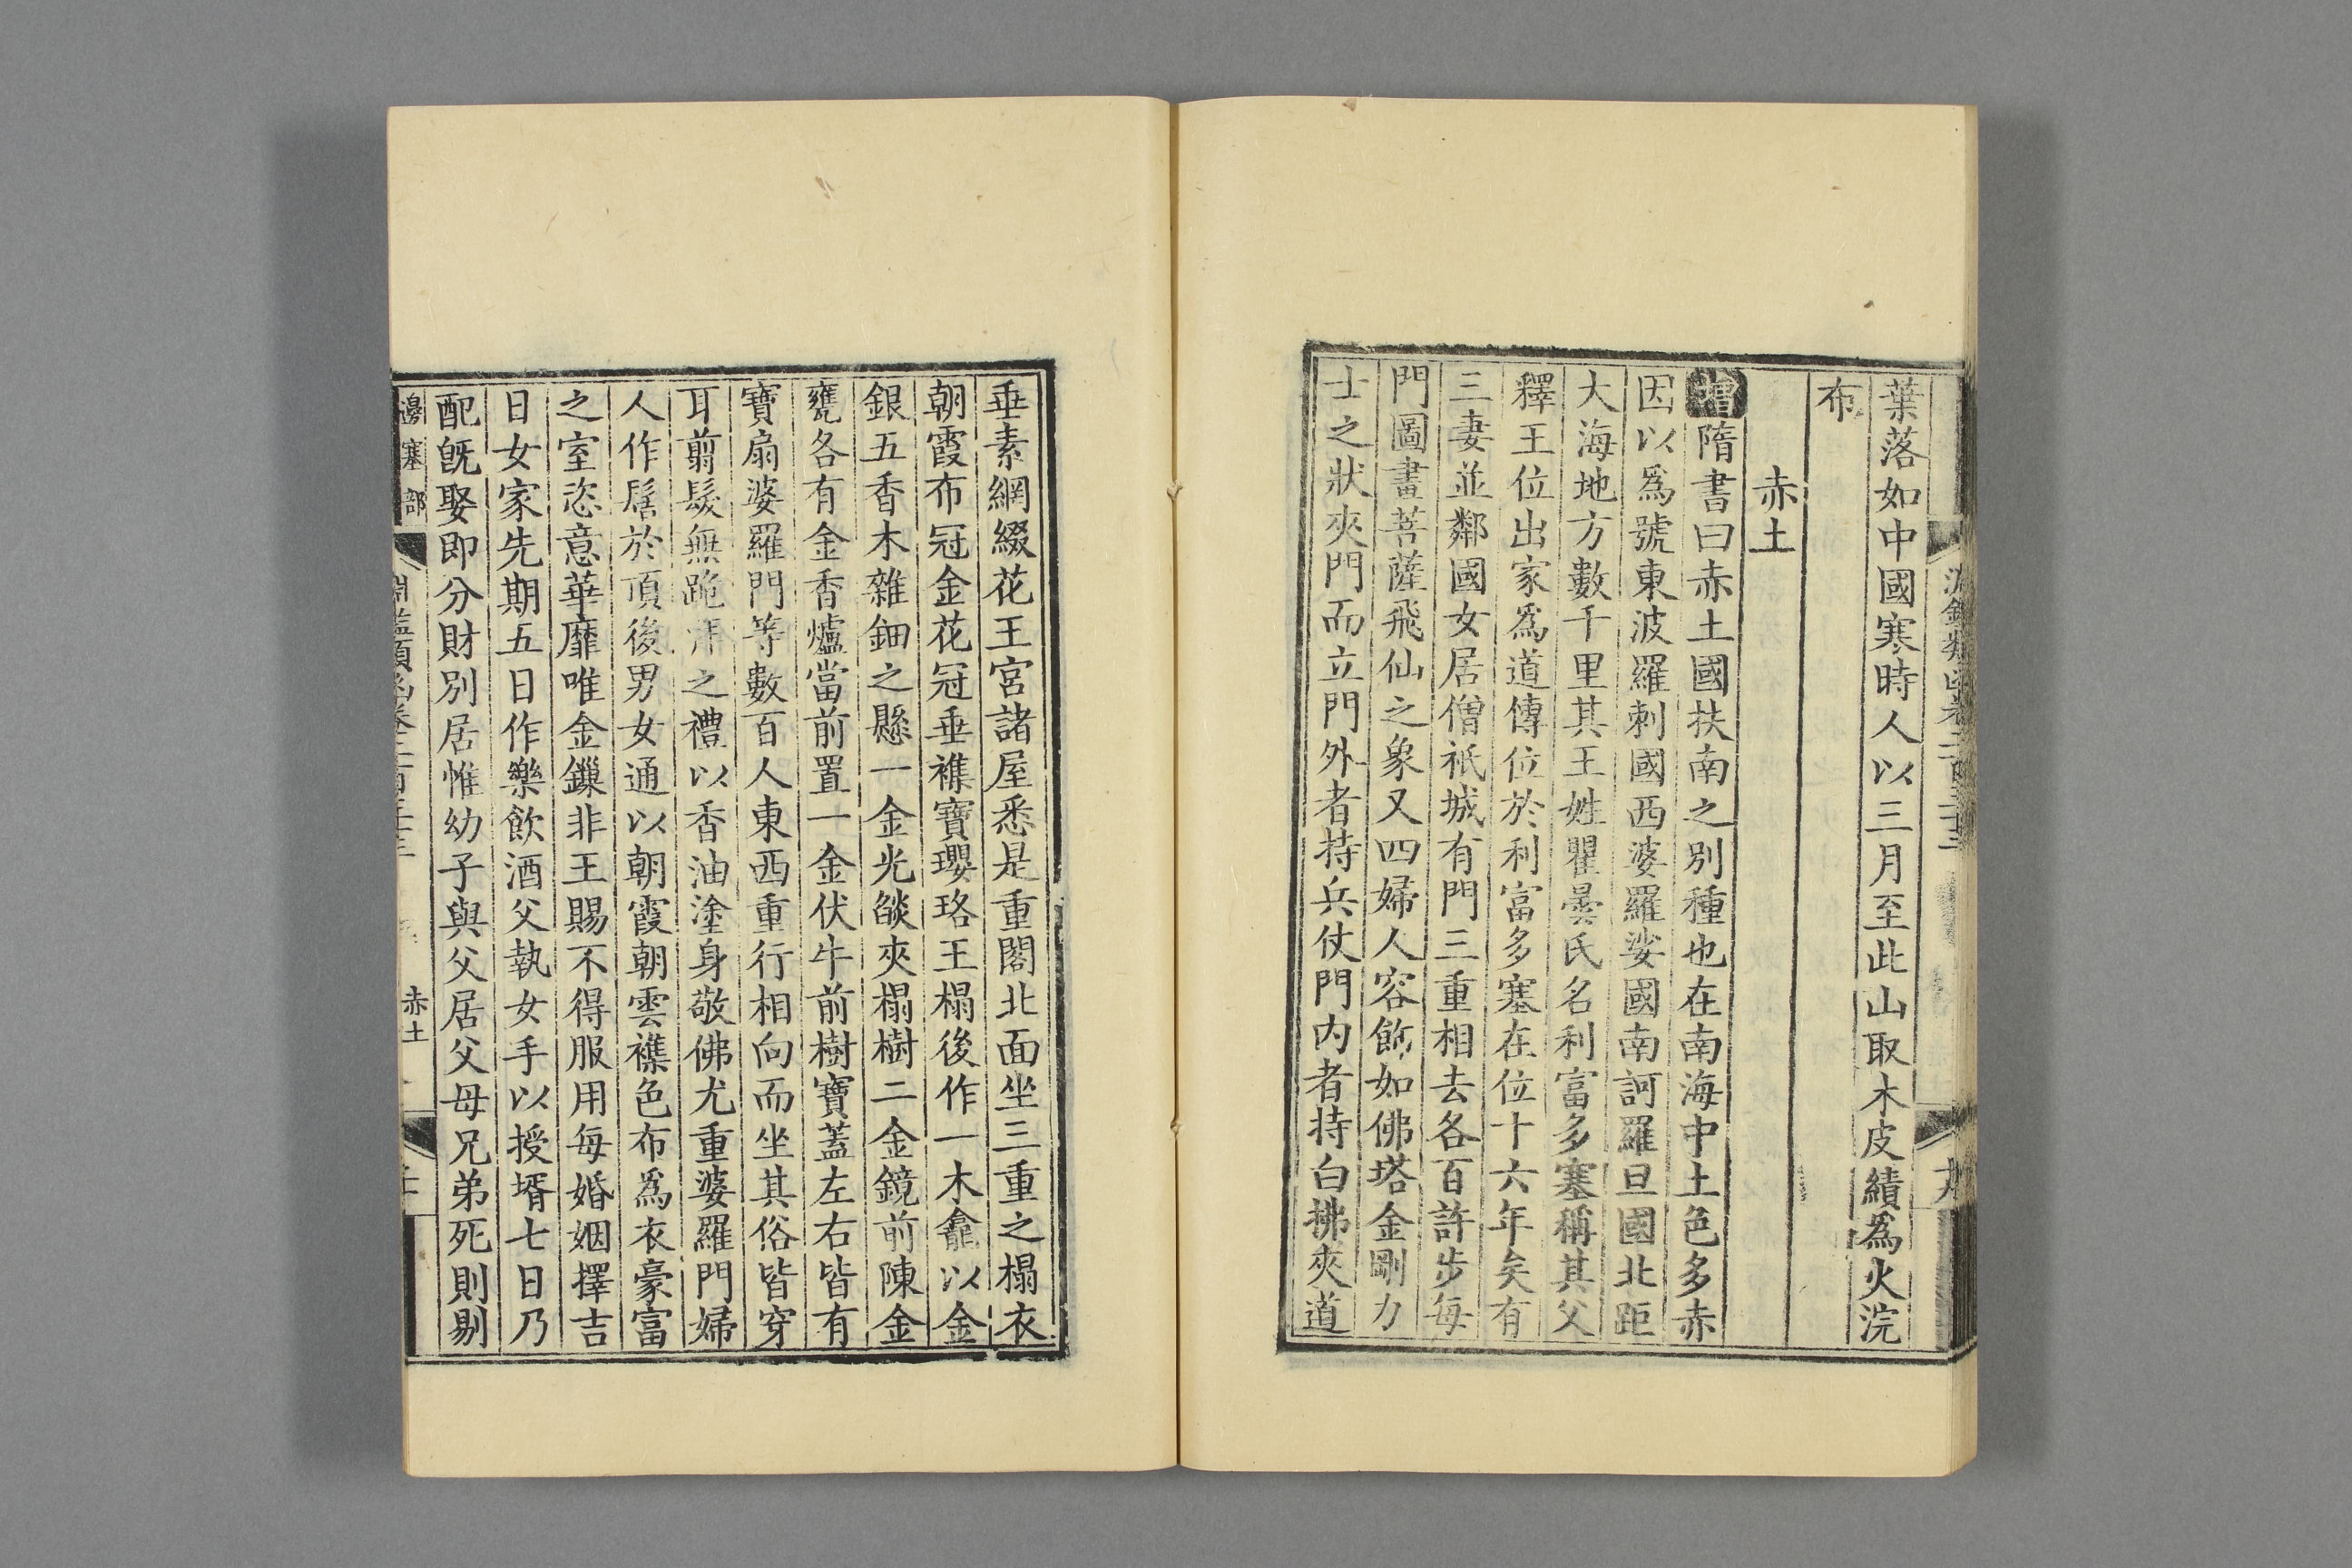 葉落如中國寒時人以三月至此山取木皮績爲火浣
布
赤土
增隋書曰赤土國扶南之別種也在南海中土色多赤
因以爲號東波羅刺國西婆羅娑國南訶羅旦國北距
大海地方數千里其王姓瞿曇氏名利富多塞稱其父
釋王位出家爲道傳位於利富多塞在位十六年矣有
三妻並鄰國女居僧祇城有門三重相去各百許步每
門圖畫菩薩飛仙之象又四婦人容飾如佛塔金剛力
士之狀夾門而立門外者持兵仗門内者持白拂夾道
垂素網綴花王宮諸屋悉是重閣北面坐三重之榻衣
朝霞布冠金花冠垂襍寶瓔珞王榻後作一木龕以金
銀五香木雜鈿之懸一金光燄夾榻樹二金鏡前陳金
甕各有金香爐當前置一金伏牛前樹寶蓋左右皆有
寶扇婆羅門等數百人東西重行相向而坐其俗皆穿
耳翦髮無跪拜之禮以香油塗身敬佛尤重婆羅門婦
人作髻於項後男女通以朝霞朝雲襍色布爲衣豪富
之室恣意華靡唯金鏁非王賜不得服用每婚姻擇吉
日女家先期五日作樂飲酒父執女手以授壻七日乃
配旣娶即分財別居惟幼子與父居父母兄弟死則剔
邊塞部
赤土